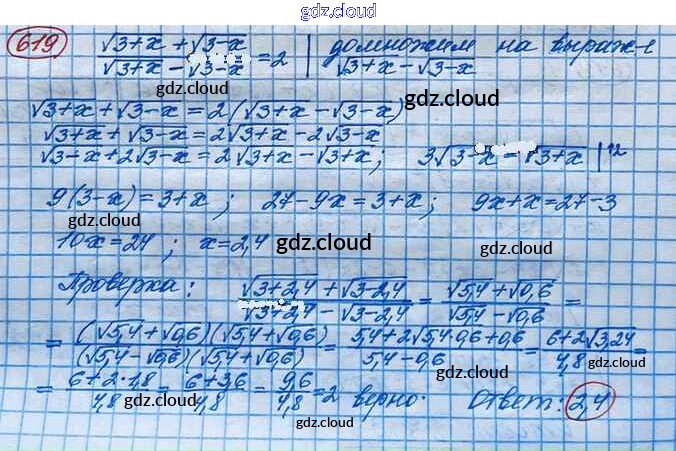 gdz.cloud
619 (√3+x + √3-x)/(√3+x - √3-x) = 2 | домножим на выраж-е
√3+x - √3-x
gdz.cloud
√3+x + √3-x = 2(√3+x - √3-x)
gdz.cloud
√3+x + √3-x = 2√3+x - 2√3-x
√3-x + 2√3-x = 2√3+x - √3+x; 3√3-x = √3+x |^2
gdz.cloud
9(3-x) = 3+x; 27-9x = 3+x; 9x+x = 27-3
gdz.cloud
10x = 24; x = 2,4
gdz.cloud gdz.cloud
Проверка: (√3+2,4 + √3-2,4)/(√3+2,4 - √3-2,4) = (√5,4 + √0,6)/(√5,4 - √0,6) =
gdz.cloud
= (√5,4+√0,6)(√5,4+√0,6)/(√5,4-√0,6)(√5,4+√0,6) = (5,4+2√5,4·0,6+0,6)/(5,4-0,6) = (6+2√3,24)/4,8 =
gdz.cloud
= (6+2·1,8)/4,8 = (6+3,6)/4,8 = 9,6/4,8 = 2 верно. Ответ: 2,4
gdz.cloud gdz.cloud
gdz.cloud